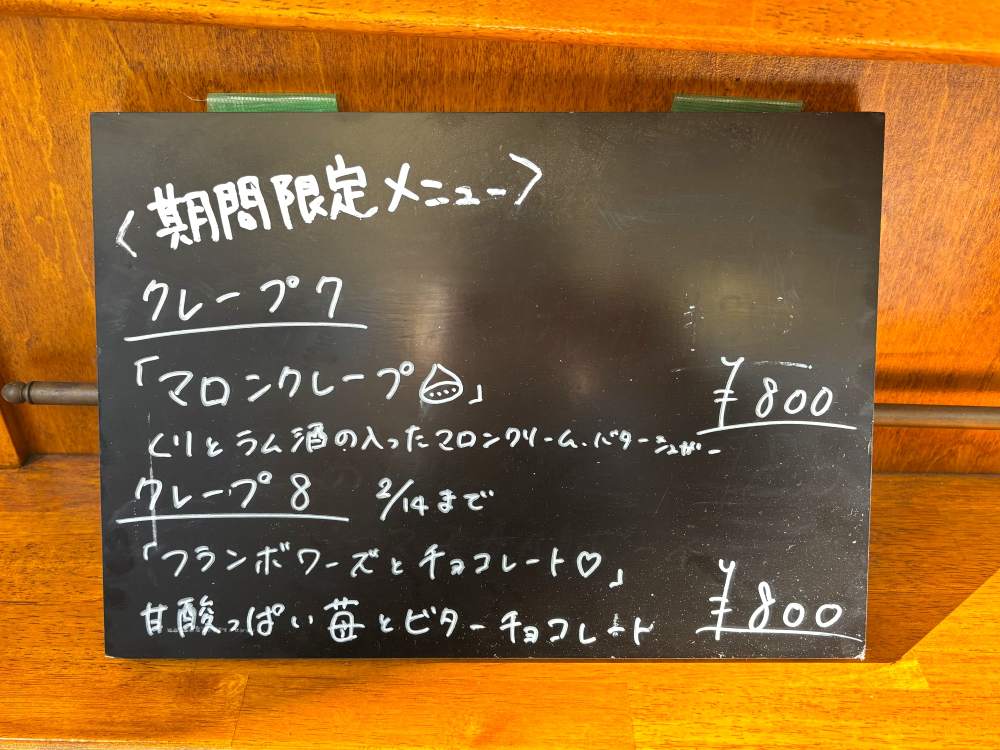 〈期間限定メニュー〉
クレープ7
「マロンクレープ🌰」 ¥800
くりとラム酒の入ったマロンクリーム、バターシュガー
クレープ8 2/14まで
「フランボワーズとチョコレート♡」
甘酸っぱい苺とビターチョコレート ¥800